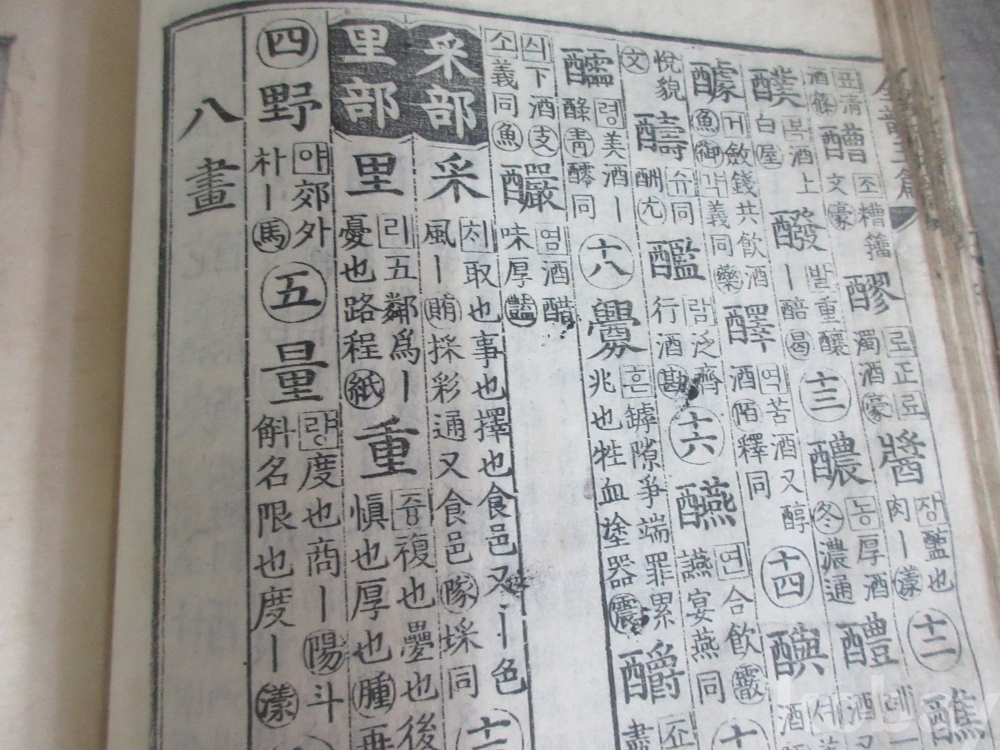 全韻玉篇
酒篘 醩 조糟籒文豪 醪 로正료濁酒豪 醬 장醢也肉ー漾 十二 醮
醭 복酒上白屋 醱 발重釀ー醅曷 十三 醲 농厚酒冬濃通 醴 례
醵 거斂錢共飮酒魚御갹義同藥 醳 역苦酒又醇酒陌釋同 十四
悅貌文 醻 슈同酬尤 람泛齊行酒勘 十六 醼 연合飮讌宴燕同霰
醽 령美酒ー醁靑醽同 十八 釁 흔罅隙爭端罪累兆也牲血塗器震 釂 조盡
싀下酒支소義同魚 釅 염酒醋味厚豔
采部 采 치取也事也擇也食邑又ー色風ー賄採彩通又食邑隊埰同
里部 里 리五鄰爲ー憂也路程紙 重 즁複也疊也後愼也厚也腫再
四 野 야郊外朴ー馬 五 量 량度也商ー陽斗斛名限也度ー漾
八畫